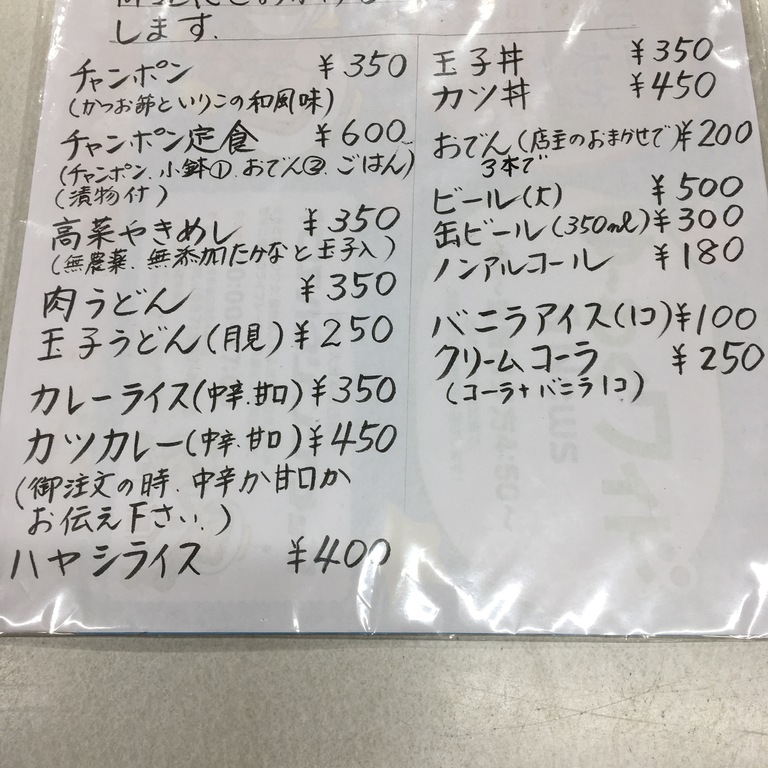 します.
チャンポン ¥350
(かつお節といりこの和風味)
チャンポン定食 ¥600
(チャンポン.小鉢①.おでん②.ごはん)
(漬物付)
高菜やきめし ¥350
(無農薬.無添加たかなと玉子入)
肉うどん ¥350
玉子うどん(月見) ¥250
カレーライス(中辛.甘口) ¥350
カツカレー(中辛.甘口) ¥450
(御注文の時.中辛か甘口か
お伝え下さい.)
ハヤシライス ¥400
玉子丼 ¥350
カツ丼 ¥450
おでん(店主のおまかせで) ¥200
3本で
ビール(大) ¥500
缶ビール(350ml) ¥300
ノンアルコール ¥180
バニラアイス(1コ) ¥100
クリームコーラ ¥250
(コーラ+バニラ1コ)